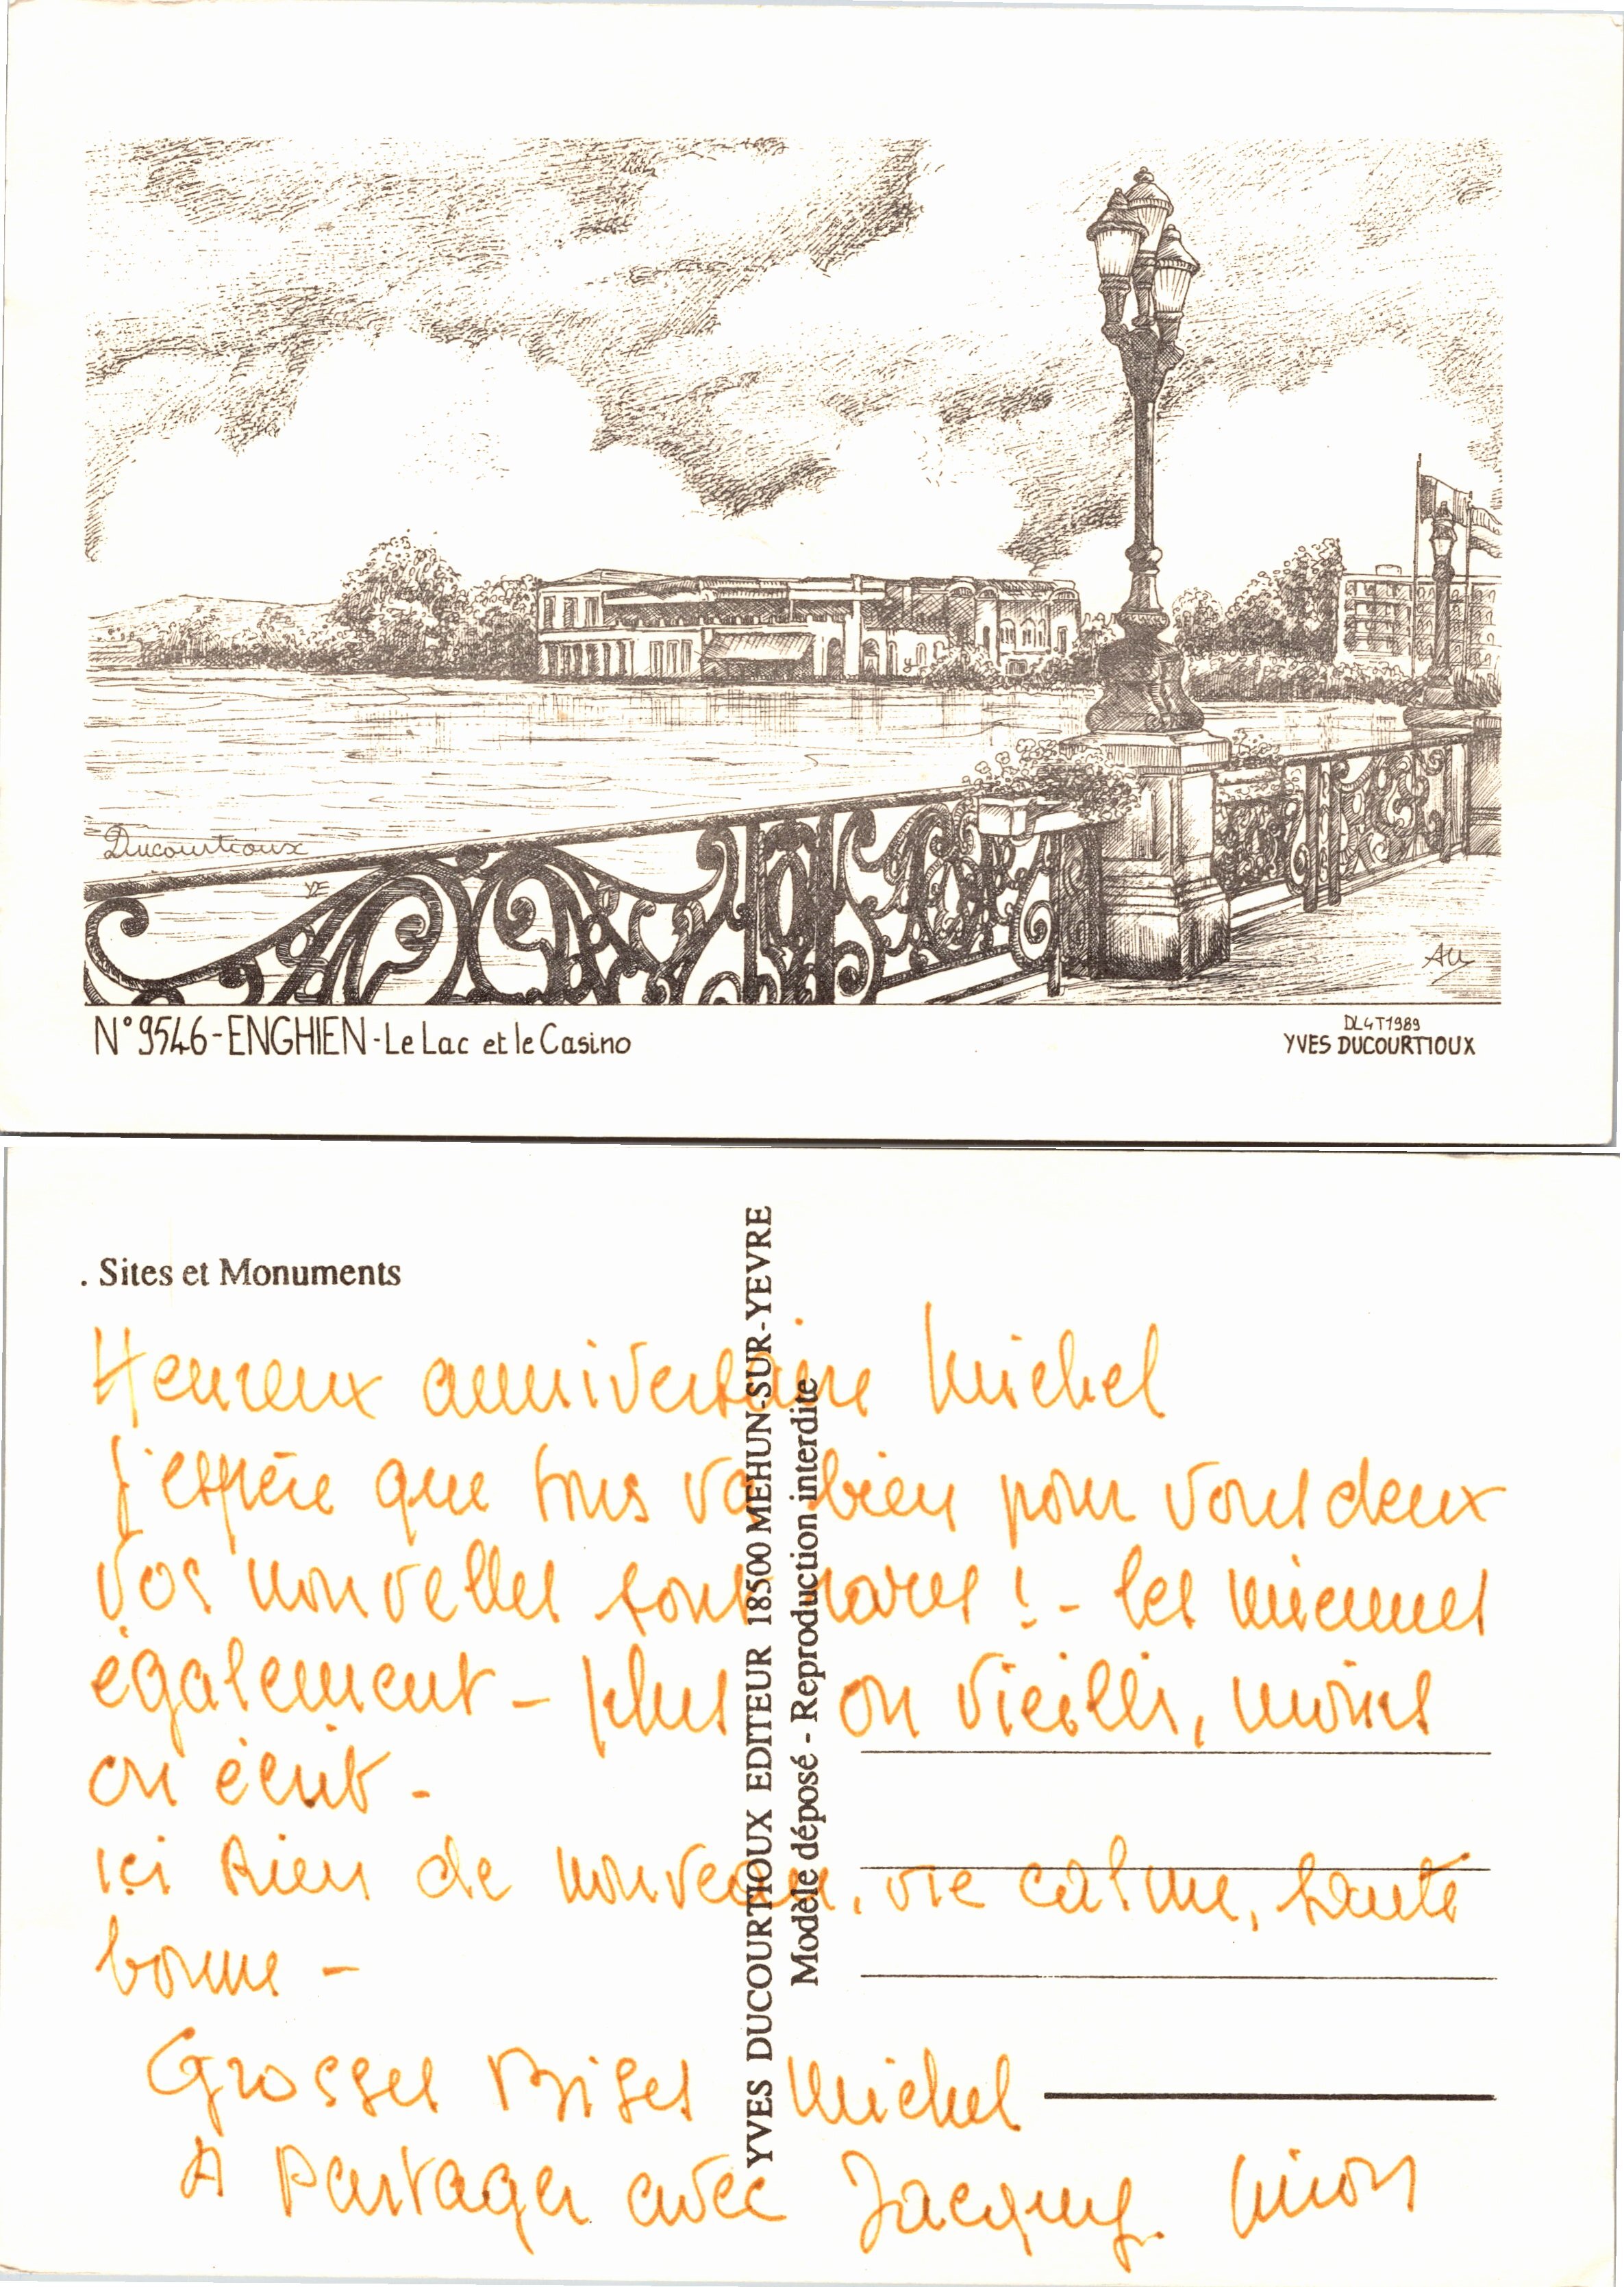 Ducourtioux
YE
N° 9546 - ENGHIEN - Le Lac et le Casino
DL4T1989
YVES DUCOURTIOUX
. Sites et Monuments
YVES DUCOURTIOUX EDITEUR 18500 MEHUN-SUR-YEVRE
Modèle déposé - Reproduction interdite
Heureux anniversaire Michel
J'espère que tous va bien pour vous deux
Vos nouvelles sont rares ! - les miennes
également - plus on vieilli, moins
on écrit -
ici Rien de nouveau, vie calme, santé
bonne -
Grosses Bises Michel
A Partager avec Jacquy. Ninon